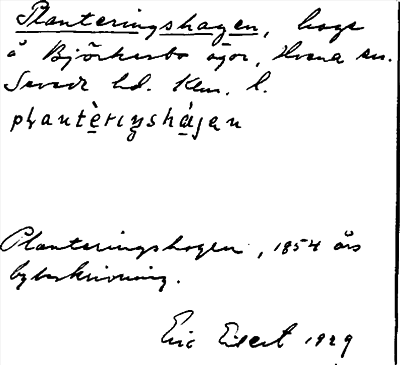 Planteringshagen, hage
å Björkerbo ägor, Hvena sn.
Sevede hd. Kem. l.
plantèriŋshàgan
Planteringshagen, 1854 års
bybeskrivning.
Eric Elgert 1929